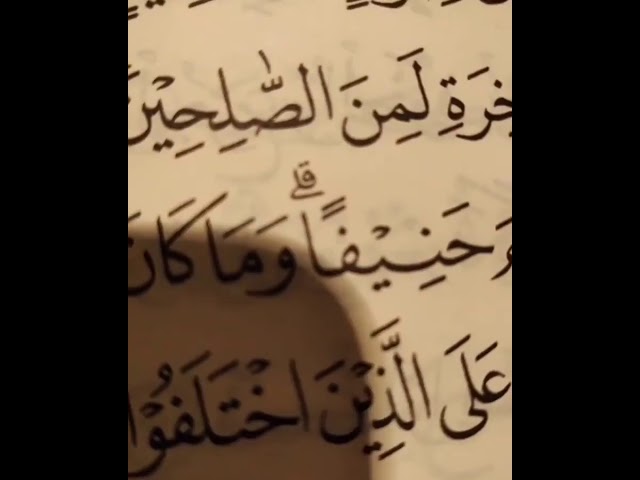 خِرَةِ لَمِنَ الصّٰلِحِيْنَ
حَنِيْفًاۗ وَمَا كَانَ
عَلَى الَّذِيْنَ اخْتَلَفُوْا